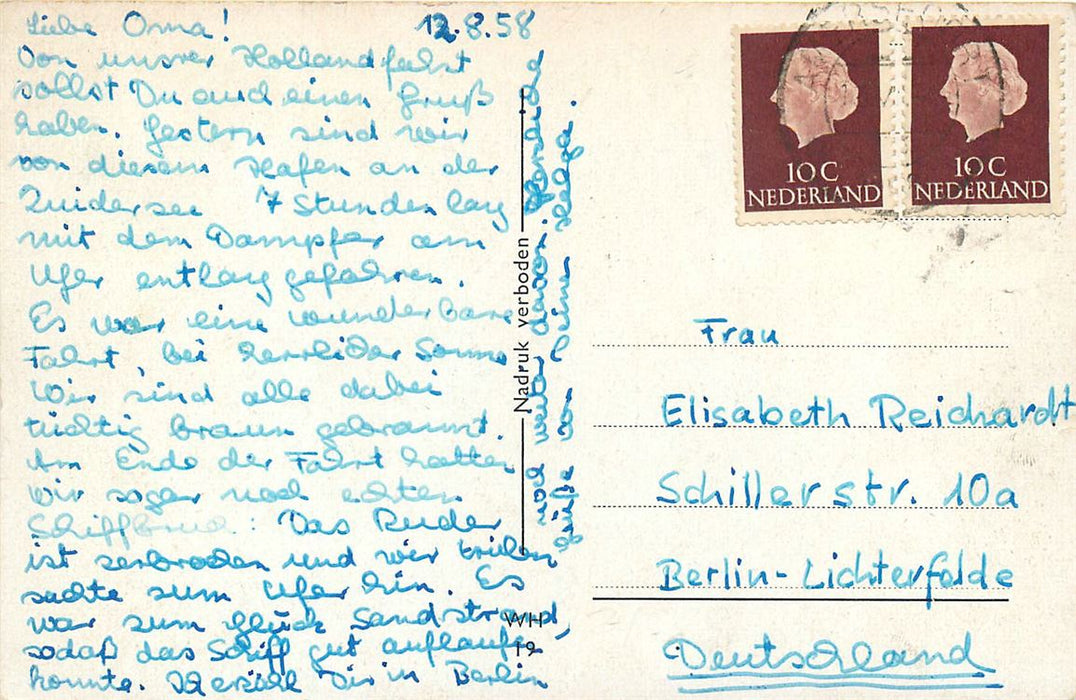 Liebe Oma! 12.8.58
Von unsrer Hollandfahrt
sollst Du auch einen Gruß
haben. Gestern sind wir
von diesem Hafen an der
Zuidersee 7 Stunden lang
mit dem Dampfer am
Ufer entlang gefahren.
Es war eine wunderbare
Fahrt, bei herrlicher Sonne
Wir sind alle dabei
tüchtig braun gebrannt.
Am Ende der Fahrt hatten
wir sogar noch echten
Schiffbruch: Das Ruder
ist zerbrochen und wir trieben
sachte zum Ufer hin. Es
war zum Glück Sandstrand,
sodaß das Schiff gut auflaufen
konnte. Ich erzähl Dir in Berlin
noch weiter davon. Herzliche
Grüße von Deiner Helga.
Nadruk verboden
WH
19
10C
NEDERLAND
10C
NEDERLAND
Frau
Elisabeth Reichardt
Schillerstr. 10a
Berlin-Lichterfelde
Deutschland